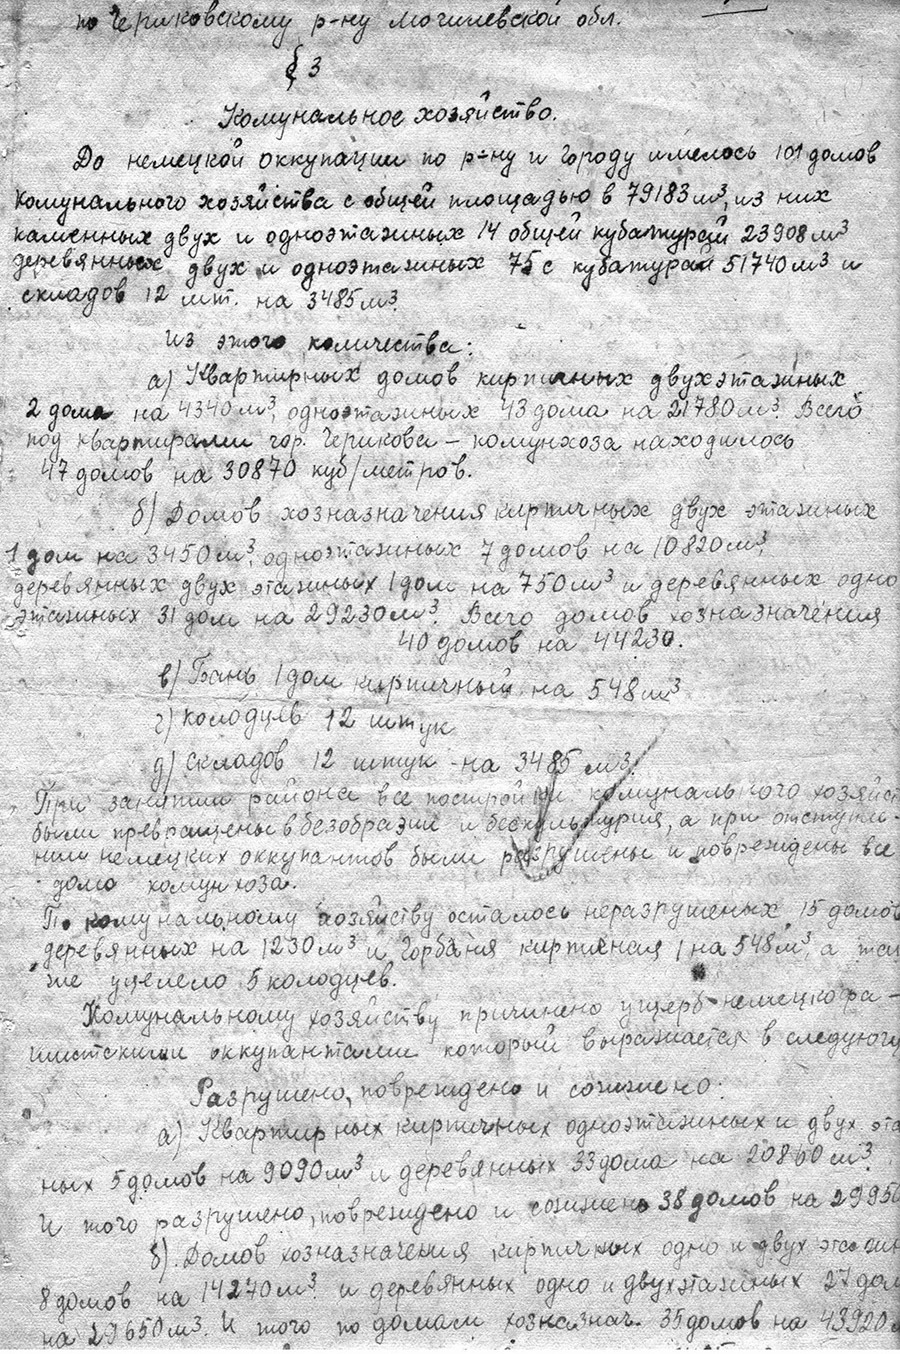 по Чериковскому р-ну Могилевской обл.
§ 3
Комунальное хозяйство.
До немецкой оккупации по р-ну и городу имелось 101 домов
комунального хозяйства с общей площадью в 79183 м³, из них
каменных двух и одноэтажных 14 общей кубатурой 23908 м³
деревянных двух и одноэтажных 75 с кубатурой 51740 м³ и
складов 12 шт. на 3485 м³.
Из этого количества:
а) Квартирных домов кирпичных двухэтажных
2 дома на 4340 м³, одноэтажных 43 дома на 21780 м³. Всего
под квартирами гор. Черикова – комунхоза находилось
47 домов на 30870 куб/метров.
б) Домов хозназначения кирпичных двух этажных
1 дом на 3450 м³, одноэтажных 7 домов на 10820 м³,
деревянных двух этажных 1 дом на 750 м³ и деревянных одно
этажных 31 дом на 29230 м³. Всего домов хозназначения
40 домов на 44230.
в) Бань 1 дом кирпичный на 548 м³
г) колодцев 12 штук
д) складов 12 штук на 3485 м³.
При занятии района все постройки комунального хозяйст
были превращены в безобразие и бескультурия, а при отступле-
нии немецких оккупантов были разрушены и повреждены все
дома комунхоза.
По комунальному хозяйству осталось неразрушеных 15 домов
деревянных на 1230 м³ и Горбаня кирпичная 1 на 548 м³, а так
же уцелело 5 колодцев.
Комунальному хозяйству причинено ущерб немецкофа-
шистскими оккупантами который выражается в следующ
Разрушено, повреждено и сожжено:
а) Квартирных кирпичных одноэтажных и двух эта
ных 5 домов на 9090 м³ и деревянных 33 дома на 20860 м³.
И того разрушено, повреждено и сожжено 38 домов на 29950
б). Домов хозназначения кирпичных одно и двух этажн
8 домов на 14270 м³ и деревянных одно и двухэтажных 27 дом
на 29650 м³. И того по домам хозназнач. 35 домов на 43920 м